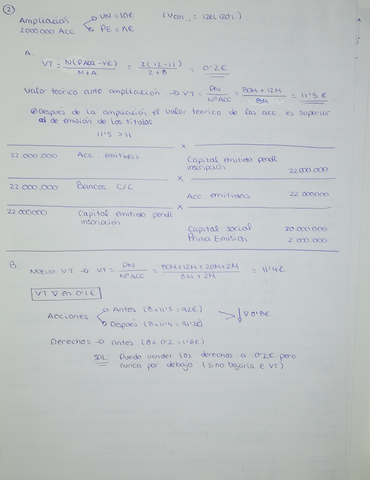 2
Ampliación VN = 10€ (VCOT. = 12€ (20%)
2000000 Acc PE = 11€
A.
VT = N(PACC - VE) / N+A = 2(12-11) / 2+8 = 0'2€
Valor teórico ante ampliación → VT = PN / NºACC = 80M + 12M / 8M = 11'5€
Después de la ampliación el valor teórico de las acc. es superior
al de emisión de los títulos
11'5 > 11
x
22.000.000 Acc emitidas
Capital emitido pendt
inscripción 22.000.000
x
22.000.000 Bancos C/C
Acc emitidas 22.000000
x
22.000000 Capital emitido pendt
inscripción
Capital social 20.000.000
Prima Emision 2.000.000
B. NUEVO VT → VT = PN / NºACC = 80M+12M+20M+2M / 8M + 2M = 11'4€
VT ∇ en 0'1€
Acciones Antes (8x11'5 = 92€) ↓ ∇ 0'8€
Después (8x11'4 = 91'2€)
Derechos → antes (8x0'2 = 1'6€)
SOL: Puedo vender los derechos a 0'2€ pero
nunca por debajo (sino bajaría € VT)